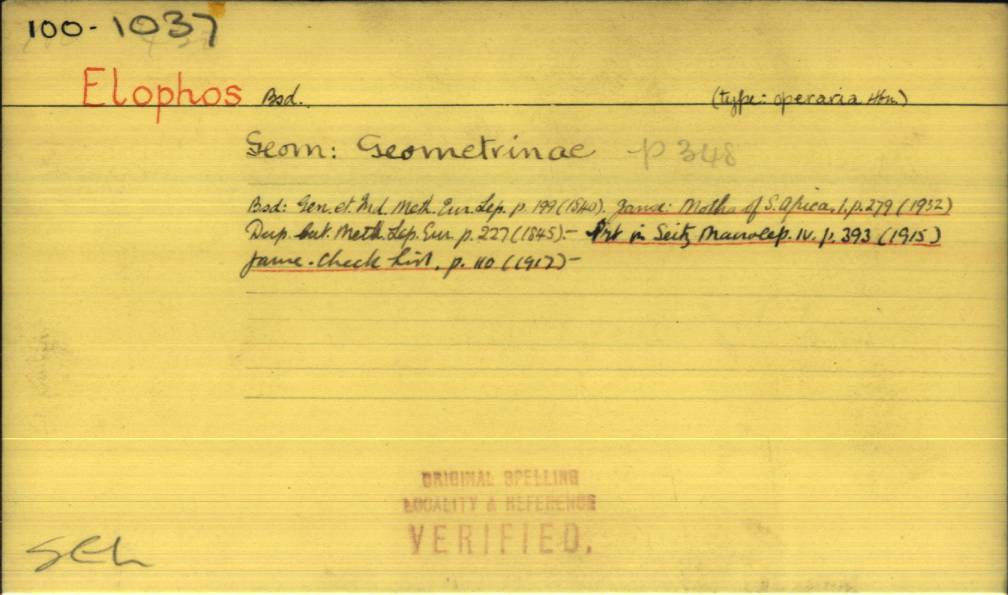 100-1037
Elophos Bsd. (type: operaria Hbn)
Geom: Geometrinae p 348
Bsd: Gen. et Ind. Meth. Eur. Lep. p. 199 (1840). Janse: Moths of S. Africa, 1, p. 279 (1932)
Dup. Cat. Meth. Lep. Eur. p. 227 (1845).- Prt in Seitz Macrolep. IV. p. 393 (1915)
Janse. Check List, p. 110 (1917)-
ORIGINAL SPELLING
LOCALITY & REFERENCE
VERIFIED.